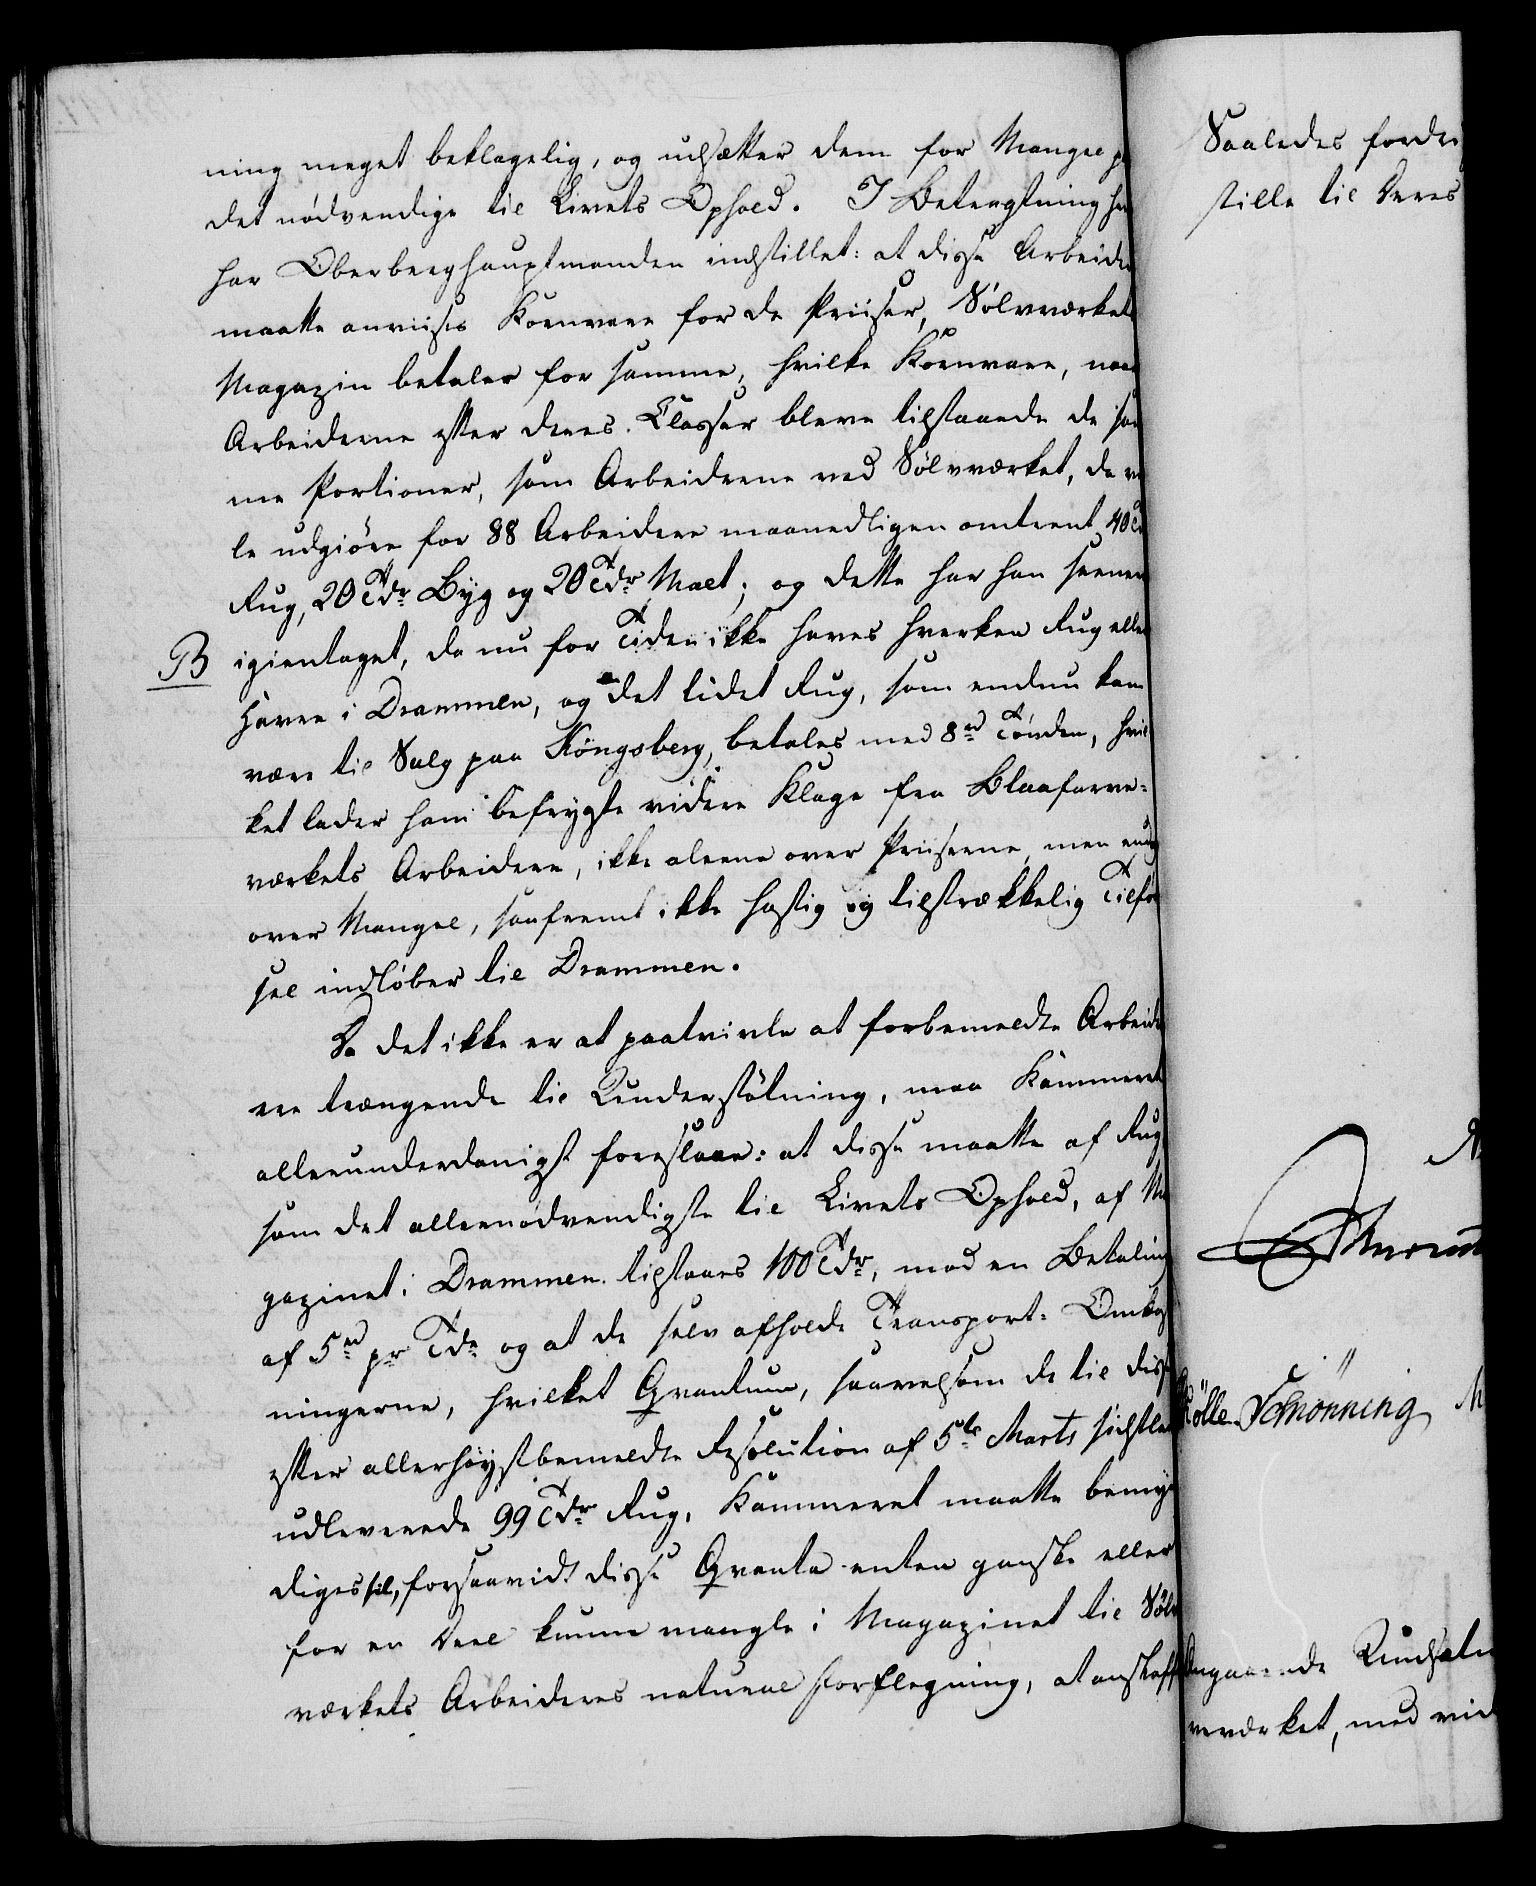 ning meget beklagelig, og udsætter dem for Mangel p
det nødvendige til Livets Ophold. I Betragtning h
har Oberberghauptmanden indstillet: at disse Arbeide
maatte anviises Kornvare for de Priiser, Sølvværkets
Magazin betaler for samme, hvilke Kornvare, naar
Arbeiderne efter deres Classer bleve tilstaaede de sam
me Portioner, som Arbeiderne ved Sølvværket, de vi
le udgiøre for 88 Arbeidere maanedligen omtrent 40 T
Rug, 20 Tdr Byg og 20 Tdr Malt; og dette har han seener
B igientaget, da nu for Tiden ikke haves hverken Rug eller
Havre i Drammen, og det lidet Rug, som endnu kan
være til Salg paa Kongsberg, betales med 8 rd Tønden, hvil
ket lader ham befrygte videre Klage fra Blaafarve=
værkets Arbeidere, ikke alene over Priiserne, men endog
over Mangel, saafremt ikke hastig og tilstrækkelig Tilfør
sel indløber til Drammen.
Da det ikke er at paatvivle at forbemeldte Arbeide
ere trængende til Understøtning, maa Kammeret
allerunderdanigst foreslaae: at disse maatte af Rug
som det allernødvendigste til Livets Ophold, af Ma
gazinet i Drammen tilstaaes 100 Tdr, mod en Betaling
af 5 rd pr Tde og at de selv afholde Transport= Omkost
ningerne, hvilket Qvantum, saavelsom de til disse
efter allerhøystbemeldte Resolution af 5te Marts sidstle
udleverede 99 Tdr Rug, Kammeret maatte bemyn
diges til, forsaavidt disse Qvanta enten ganske eller
for en Deel kunne mangle i Magazinet til Sølv
værkets Arbeideres naturel Forflegning, at anskaff
Saaledes fordri
stille til Deres
Schønning
ngaaende Undsætn
rværket, med vid